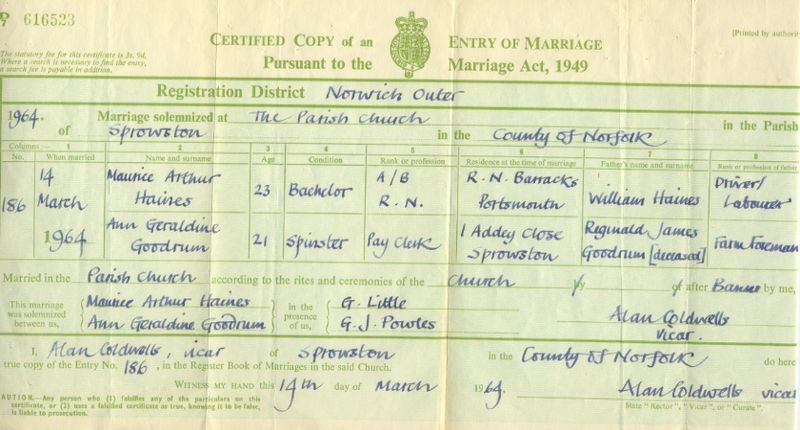 616523
CERTIFIED COPY of an ENTRY OF MARRIAGE
[Printed by authority
The statutory fee for this certificate is 3s. 9d.
Where a search is necessary to find the entry,
a search fee is payable in addition.
Pursuant to the Marriage Act, 1949
Registration District Norwich Outer
1964. Marriage solemnized at The Parish Church in the Parish
of Sprowston in the County of Norfolk
Columns :— 1 2 3 4 5 6 7 8
No. When married Name and surname Age Condition Rank or profession Residence at the time of marriage Father's name and surname Rank or profession of father
186 14 March 1964 Maurice Arthur Haines 23 Bachelor A/B R.N. R.N. Barracks Portsmouth William Haines Driver/Labourer
Ann Geraldine Goodrum 21 Spinster Pay Clerk 1 Addey Close Sprowston Reginald James Goodrum [deceased] Farm Foreman
Married in the Parish Church according to the rites and ceremonies of the Church by or after Banns by me,
This marriage was solemnized between us, Maurice Arthur Haines Ann Geraldine Goodrum in the presence of us, G. Little G. J. Powles Alan Coldwells vicar.
I, Alan Coldwells, vicar of Sprowston in the County of Norfolk do here
true copy of the Entry No. 186, in the Register Book of Marriages in the said Church.
WITNESS MY HAND this 14th day of March 1964. Alan Coldwells vicar
CAUTION.—Any person who (1) falsifies any of the particulars on this
certificate, or (2) uses a falsified certificate as true, knowing it to be false,
is liable to prosecution.
State "Rector", "Vicar", or "Curate".